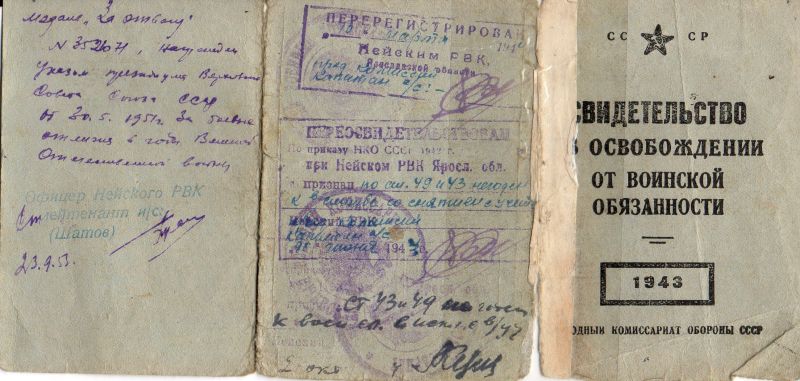 Медаль „За отвагу"
N 352671, награжден
Указом президиума Верховного
Совета Союза ССР
от 30.5.1951г. за боевые
отличия в годы Великой
Отечественной войны
Офицер Нейского РВК
лейтенант и/с
(Шатов)
23.9.53.
ПЕРЕРЕГИСТРИРОВАН
марта 194
Нейским РВК,
Ярославской области
пред. комиссии
капитан а/с
ПЕРЕОСВИДЕТЕЛЬСТВОВАН
По приказу НКО СССР 1942 г.
при Нейском РВК Яросл. обл.
и признан по ст. 49 и 43 негоден
к в/службе, со снятием с учета
РВК
капитан а/с
194 г.
ст 43 и 49 не годен
к
СС СР
СВИДЕТЕЛЬСТВО
ОБ ОСВОБОЖДЕНИИ
ОТ ВОИНСКОЙ
ОБЯЗАННОСТИ
1943
ОДНЫЙ КОМИССАРИАТ ОБОРОНЫ СССР